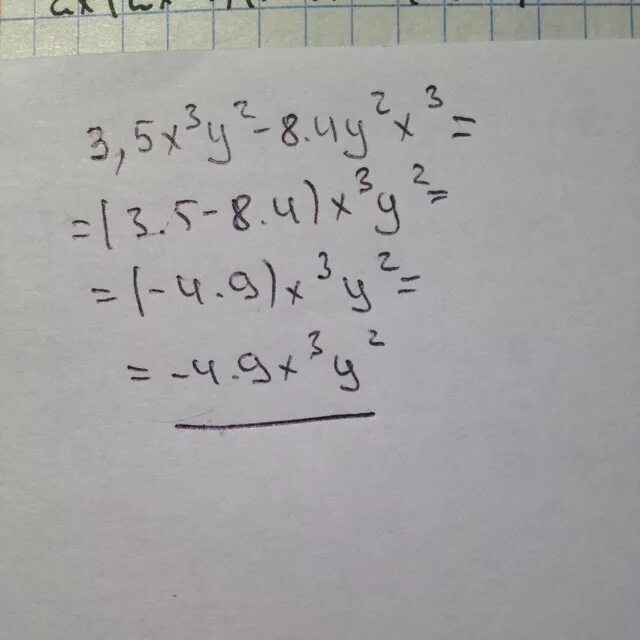 3,5x³y² - 8.4y²x³ =
= (3.5 - 8.4)x³y² =
= (-4.9)x³y² =
= -4.9x³y²